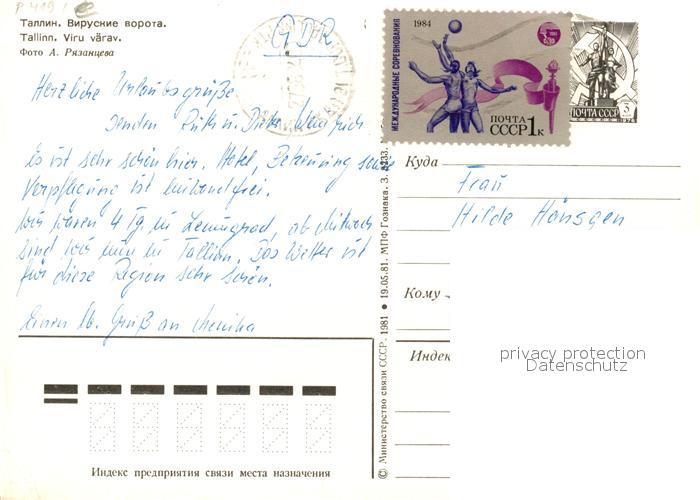 Таллин. Вируские ворота.
Tallinn. Viru värav.
Фото А. Рязанцева
GDR
Herzliche Urlaubsgrüße
senden Ruth u. Dieter
Es ist sehr schön hier. Hotel, Betreuung sowie
Verpflegung ist einwandfrei.
Wir waren 4 Tg. in Leningrad, ab Mittwoch
sind wir nun in Tallinn. Das Wetter ist
für diese Region sehr schön.
Einen lb. Gruß an Monika
1984
МЕЖДУНАРОДНЫЕ СОРЕВНОВАНИЯ
ПОЧТА
СССР 1к
ПОЧТА СССР 3
Куда
Frau
Hilde Hänsgen
Кому
Индек
privacy protection
Datenschutz
© Министерство связи СССР. 1981 ● 19.05.81. МПФ Гознака. З.
Индекс предприятия связи места назначения